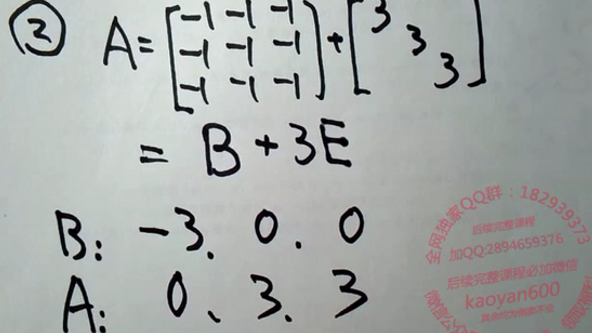 ② A = [-1 -1 -1; -1 -1 -1; -1 -1 -1] + [3 3 3]
= B + 3E
B: -3. 0. 0
A: 0、3. 3
全网独家QQ群：182939373
后续完整课程
加QQ:2894659376
后续完整课程必加微信
kaoyan600